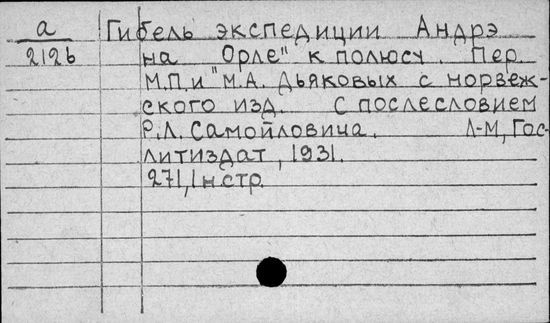 а Гибель экспедиции Андрэ
2126 на "Орле" к полюсу. Пер.
М.П. и М.А. Дьяковых с норвеж-
ского изд. С послесловием
Р.Л. Самойловича. Л-М, Гос-
литиздат, 1931.
271, 1 н.стр.